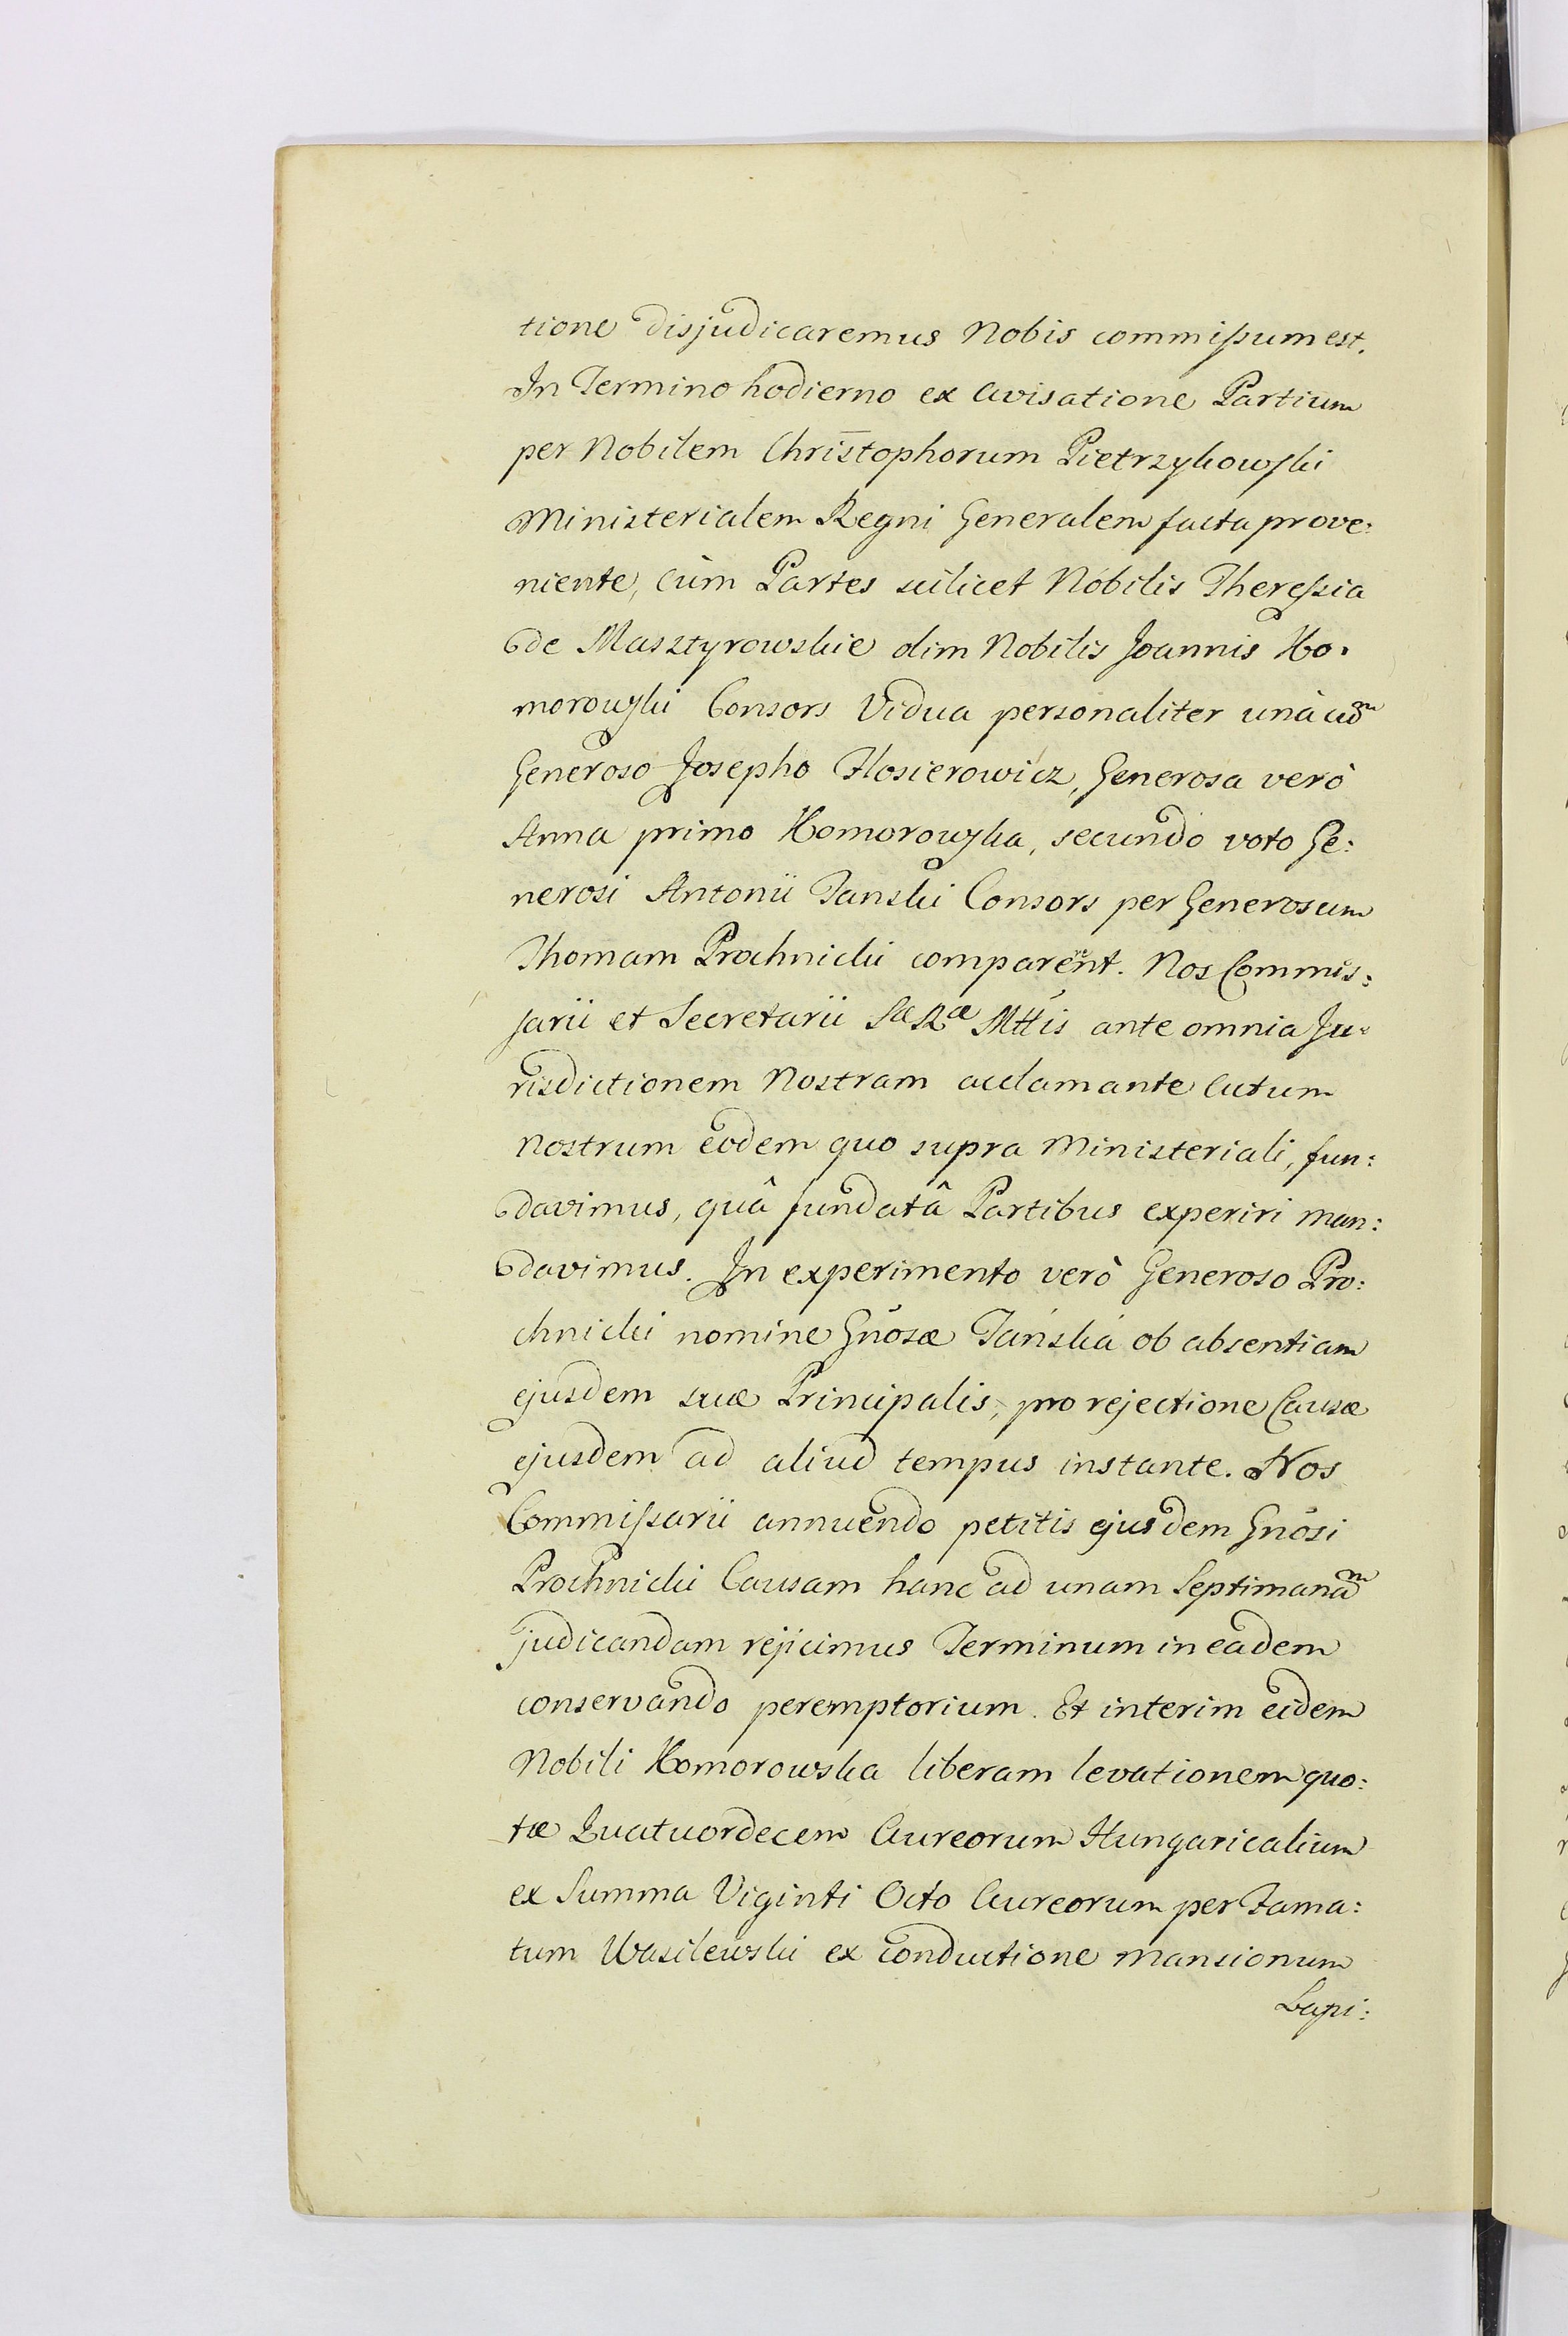 tione disjudicaremus Nobis commissum est.
In Termino hodierno ex Avisatione Partium
per Nobilem Christophorum Pietrzykowski
Ministerialem Regni Generalem facta prove:
niente, cùm Partes scilicet Nobilis Theressia
de Masztyrowskie olim Nobilis Joannis Ko:
morowski Consors Vidua personaliter unà cum
Generoso Josepho Flosierowicz, Generosa verò
Anna primo Komorowska, secundo voto Ge:
nerosi Antonii Tanski Consors per Generosum
Thomam Prochnicki comparent. Nos Commis:
sarii et Secretarii Sæ Ræ Mttis ante omnia Ju:
risdictionem Nostram acclamante Actum
Nostrum eodem quo supra Ministeriali, fun:
davimus, quâ fundatâ Partibus experiri man:
davimus. In experimento verò Generoso Pro:
chnicki nomine Gnosæ Tańska ob absentiam
ejusdem suæ Principalis, pro rejectione Causæ
ejusdem ad aliud tempus instante. Nos
Commissarii annuendo petitis ejusdem Gnosi
Prochnicki Causam hanc ad unam Septimanam
judicandam rejicimus Terminum in eadem
conservando peremptorium. Et interim eidem
Nobili Komorowska liberam levationem quo:
tæ Quatuordecem Aureorum Hungaricalium
ex Summa Viginti Octo Aureorum per Fama:
tum Wasilewski ex conductione Mansionum
Lapi: